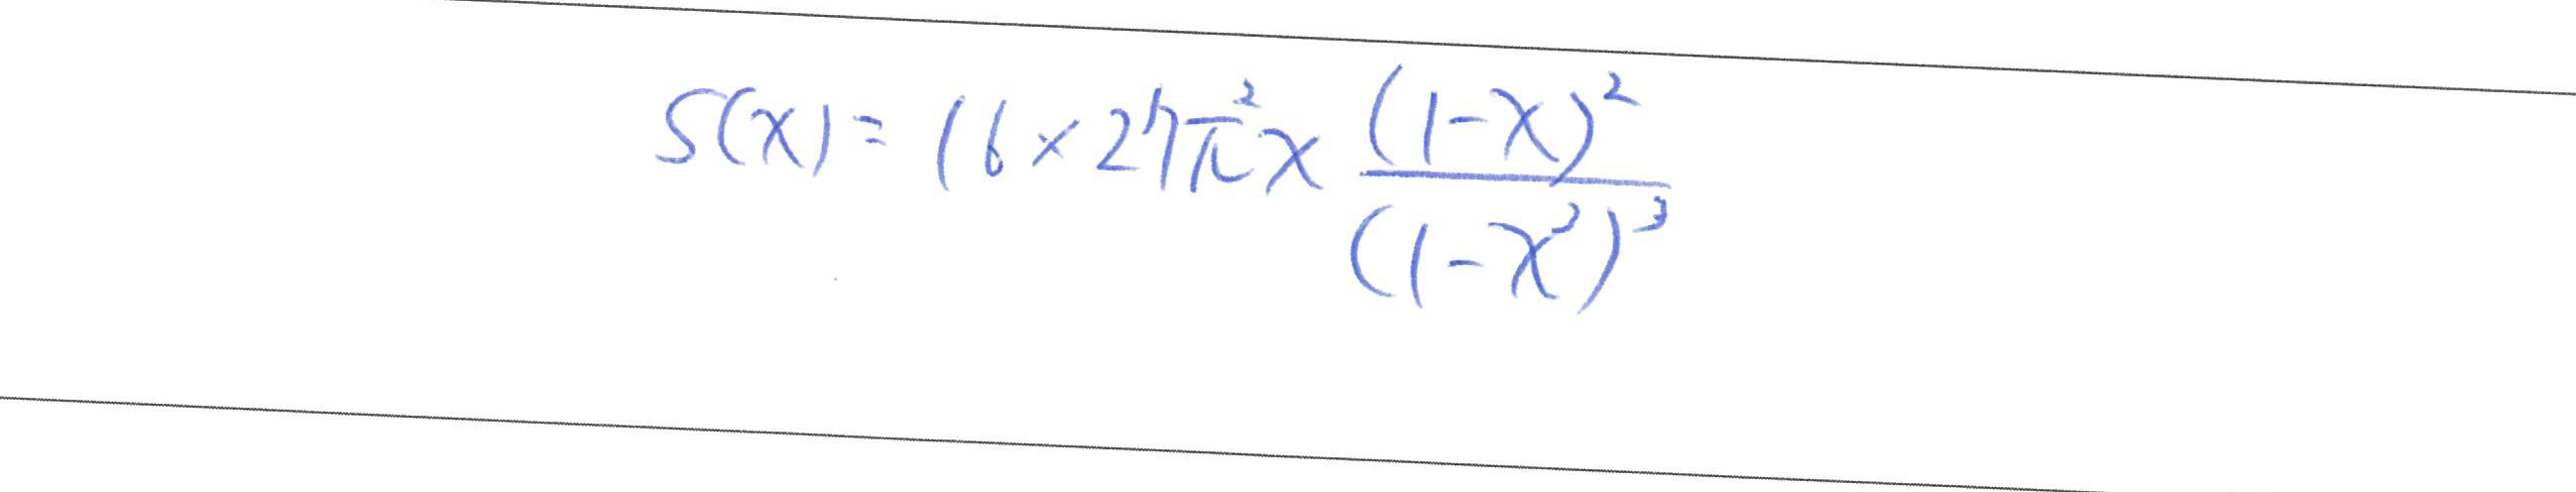 S(x) = 16 × 27π² x (1-x)² / (1-x³)³